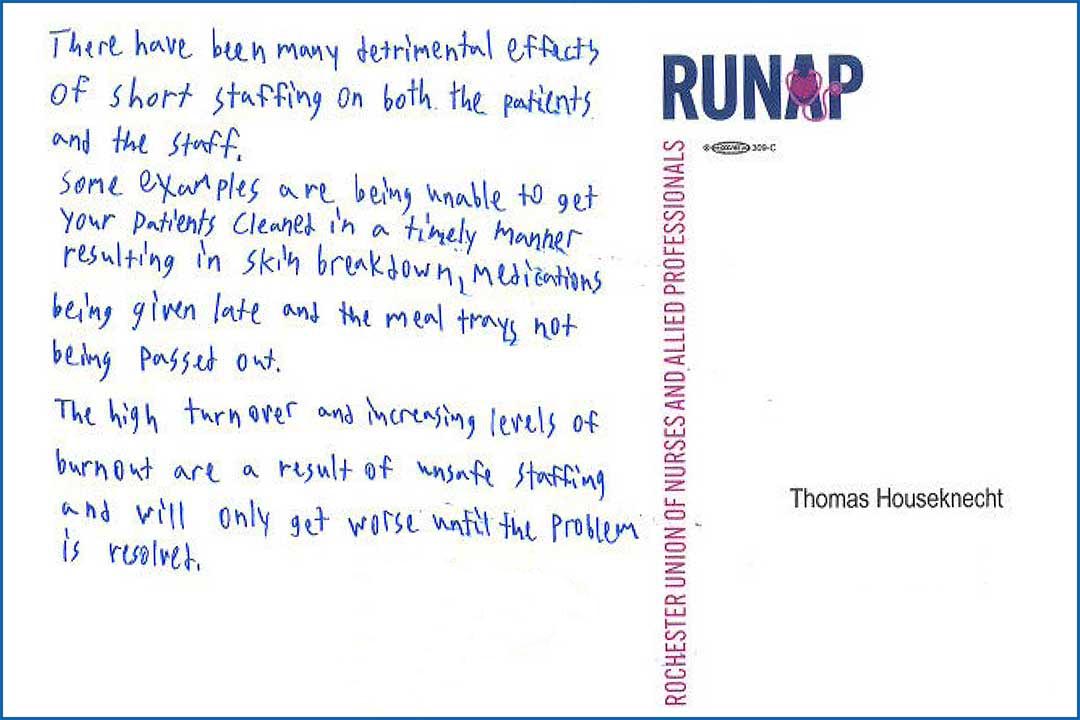 There have been many detrimental effects
of short staffing on both the patients
and the staff.
Some examples are being unable to get
your patients cleaned in a timely manner
resulting in skin breakdown, medications
being given late and the meal trays not
being passed out.
The high turnover and increasing levels of
burnout are a result of unsafe staffing
and will only get worse until the problem
is resolved.
RUNAP
309-C
ROCHESTER UNION OF NURSES AND ALLIED PROFESSIONALS
Thomas Houseknecht